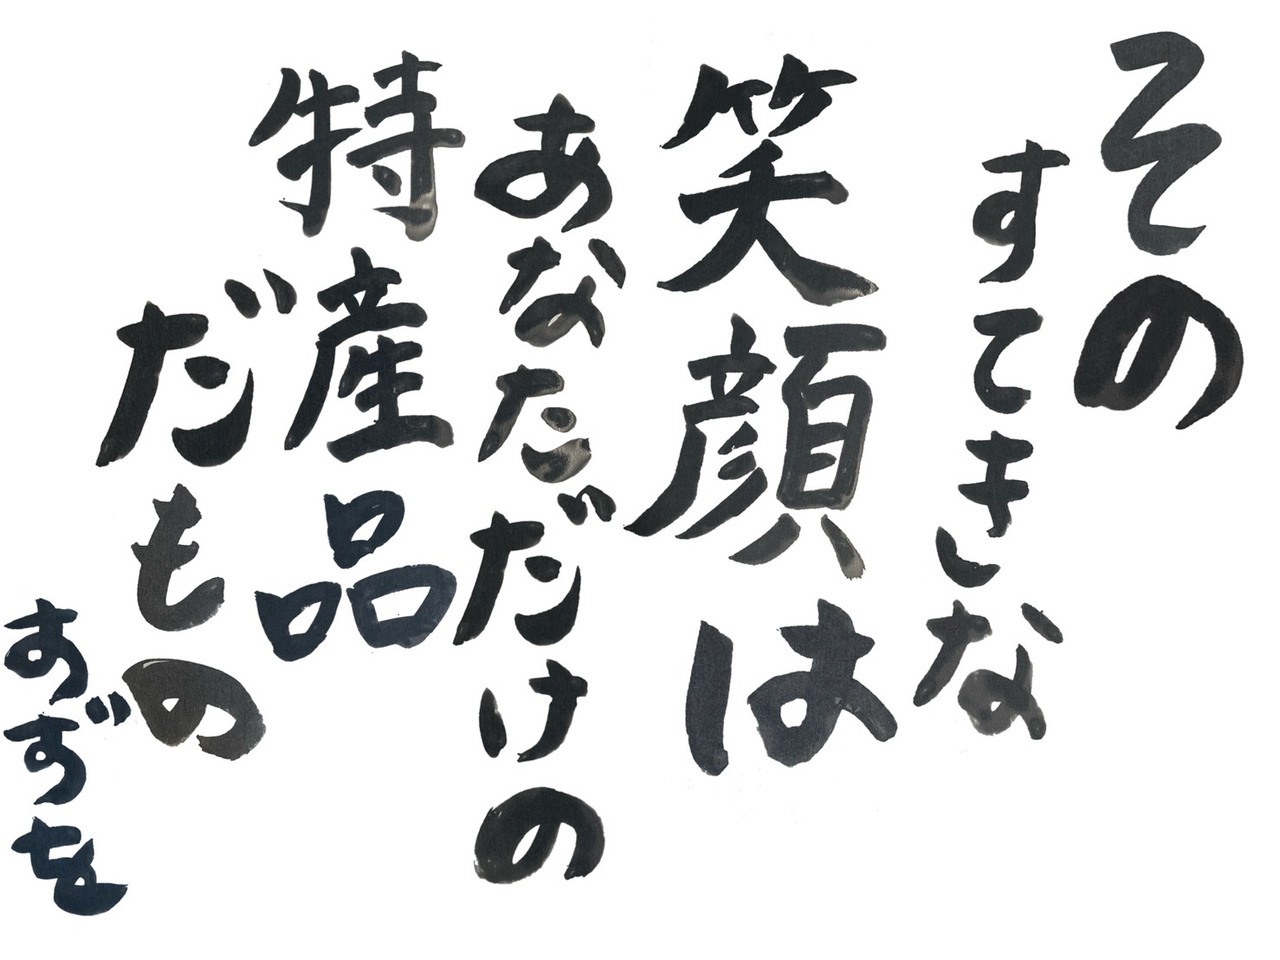 その
すてきな
笑顔は
あなただけの
特産品
だもの
すずを